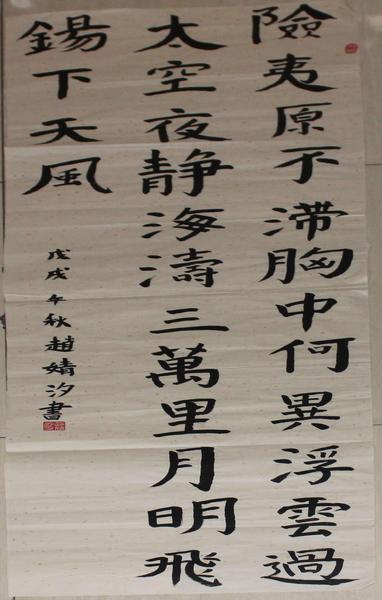 險夷原不滯胸中何異浮雲過
太空夜静海濤三萬里月明飛
錫下天風
戊戌年秋趙婧汐書